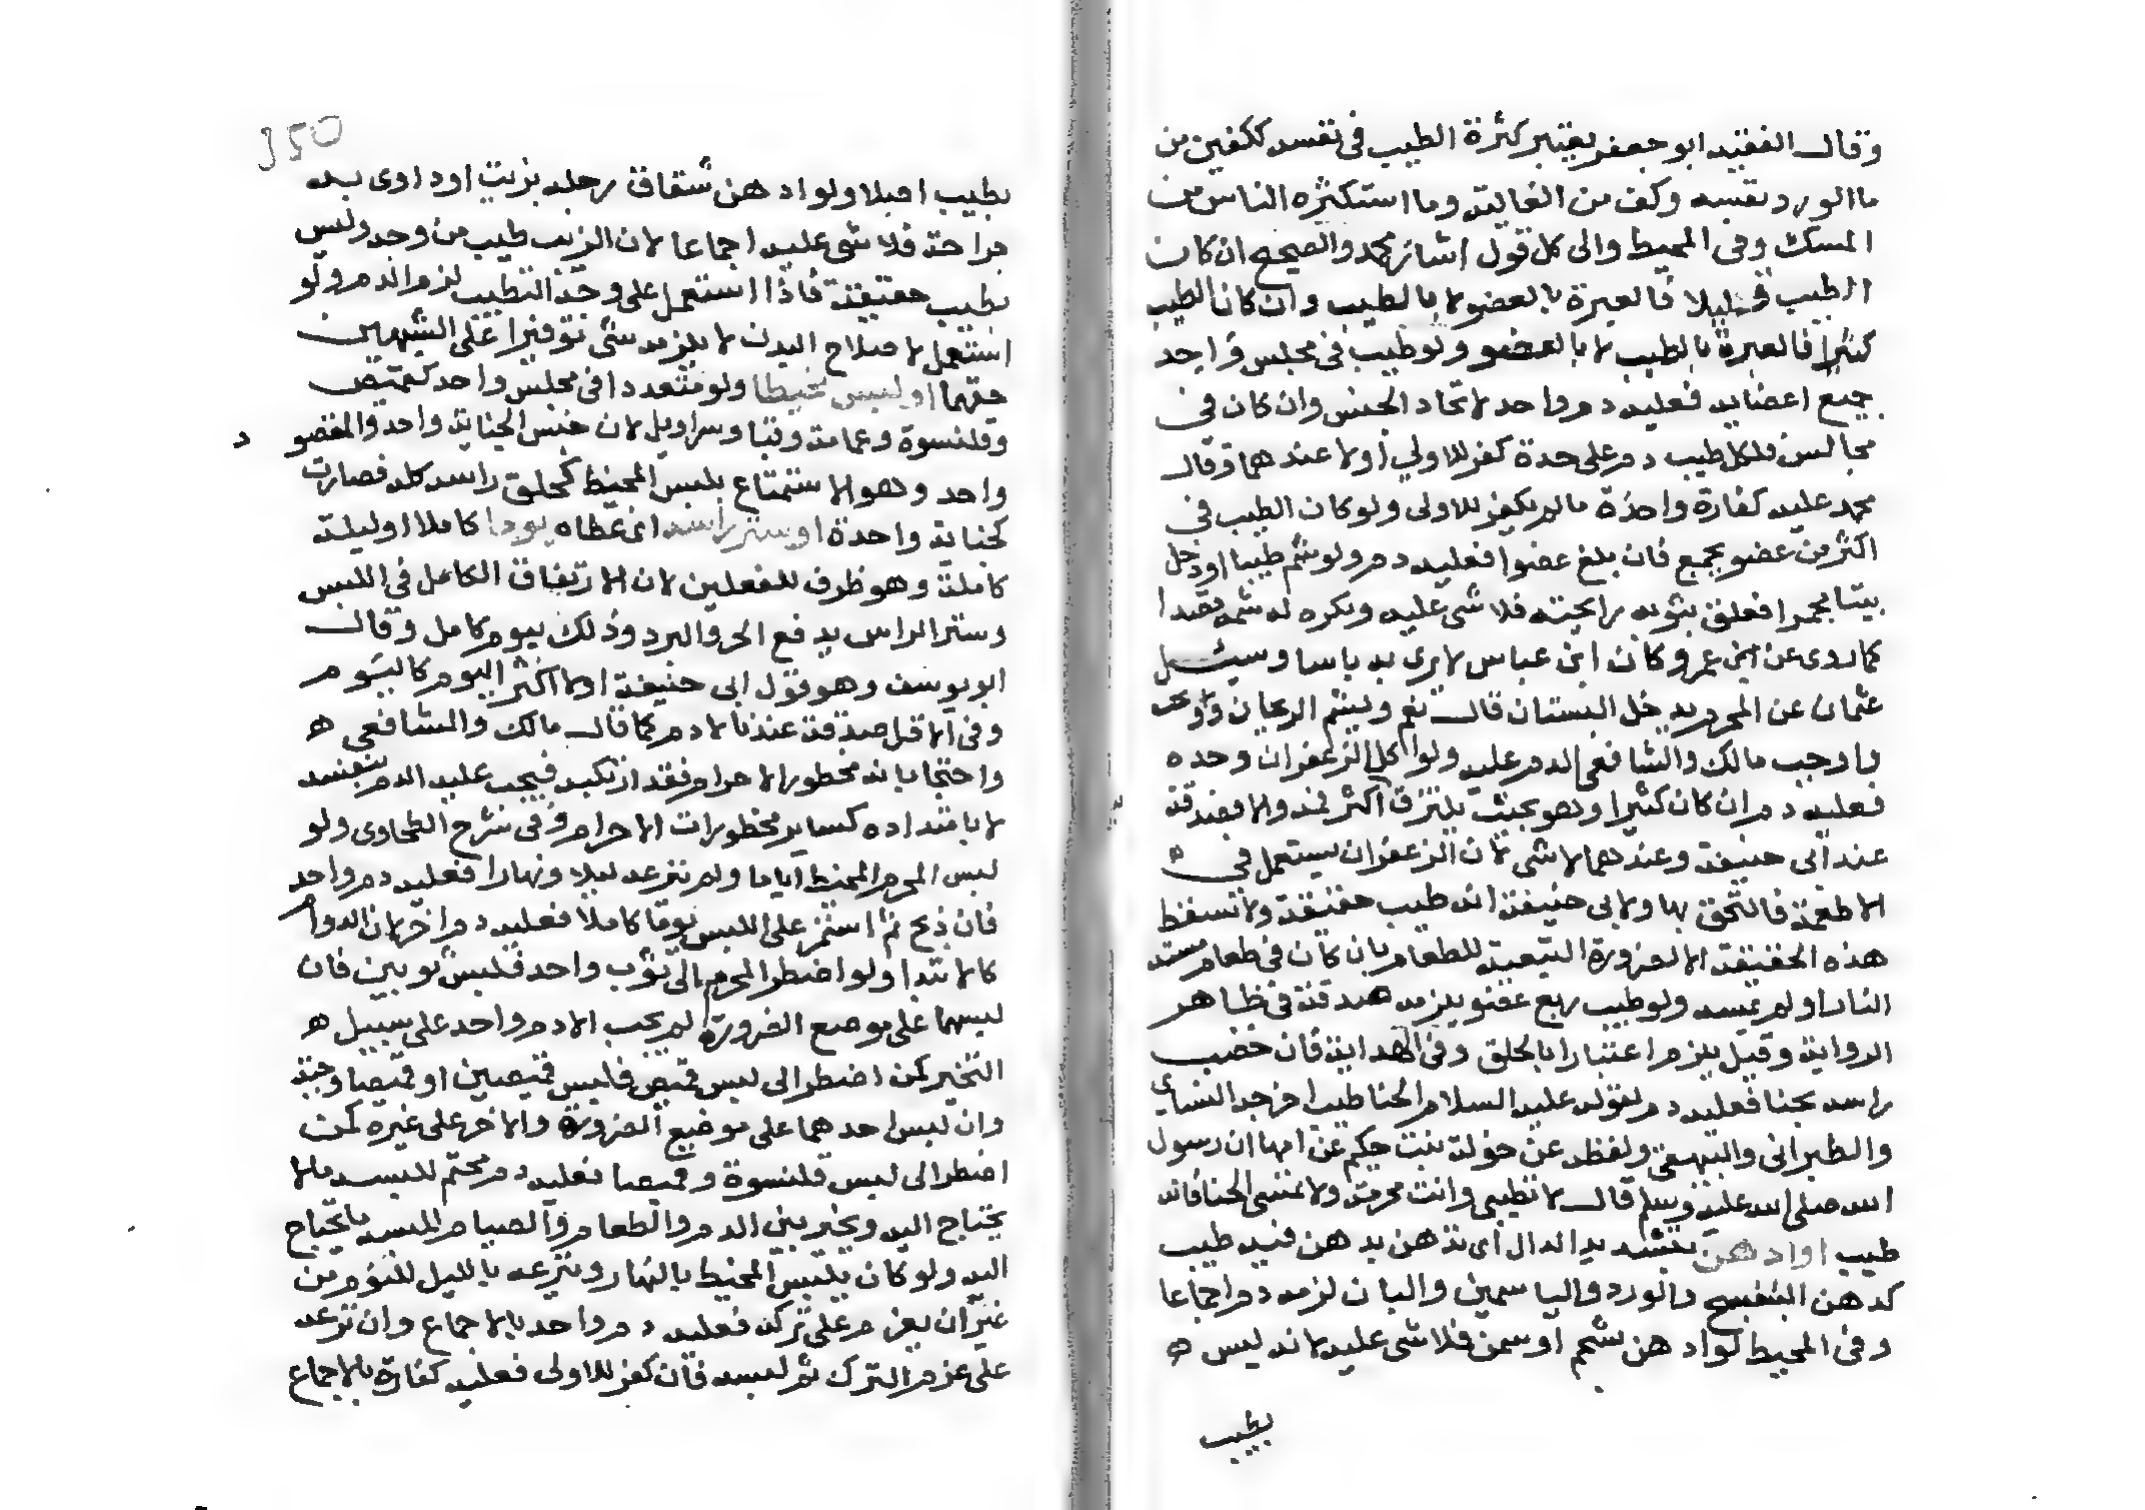 وقال الفقيه ابو جعفر يعتبر كثرة الطيب في نفسه ككفين من
ماالورد بنفسه وكف من الغالية وما استكثره الناس من
المسك وفي المحيط والى كل قول اشار محمد والصحيح ان كان
الطيب قليلا فالعبرة بالعضو لا بالطيب وان كان الطيب
كثيرا فالعبرة بالطيب لا بالعضو ولو طيب في مجلس واحد
جميع اعضايه فعليه دم واحد لاتحاد الجنس وان كان في
مجالس فلكل طيب دم على حدة كفر للاولى اولا عندهما وقال
محمد عليه كفارة واحدة مالم يكفر للاولى ولو كان الطيب في
اكثر من عضو يجمع فان بلغ عضوا فعليه دم ولو شم طيبا او دخل
بيتا مجمرا فعلق بثوبه رايحته فلا شى عليه ويكره له شمه قصدا
كما روى عن ابن عمر وكان ابن عباس لا يرى به باسا وسيئل
عثمان عن المحرم يدخل البستان قال نعم ويشم الريحان
واوجب مالك والشافعي الدم عليه ولو اكل الزعفران وحده
فعليه دم ان كان كثيرا وهو بحيث يلتزق اكثر فمه والا فصدقة
عند ابي حنيفة وعندهما لا شى لان الزعفران يستعمل في
الاطعمة فالتحق بها ولابي حنيفة انه طيب حقيقة ولا تسقط
هذه الحقيقة الا لضرورة التبعية للطعام بان كان في طعام مسته
النار او لم تمسه ولو طيب ربع عضو يلزمه صدقة في ظاهر
الرواية وقيل يلزم اعتبارا بالحلق وفي الهداية فان خضب
راسه بحنا فعليه دم لقوله عليه السلام الحنا طيب اخرجه النساى
والطبراني والبيهقي ولفظه عن خولة بنت حكيم عن امها ان رسول
الله صلى الله عليه وسلم قال لا تطيبي وانت محرمة ولا تمسى الحنا فانه
طيب او ادهن بتشديد الدال اى تدهن بدهن فيه طيب
كدهن البنفسج والورد والياسمين والبان لزمه دم اجماعا
وفي المحيط لو ادهن بشحم او سمن فلا شى عليه لانه ليس
بطيب
بطيب اصلا ولو ادهن شقاق رجله بزيت او داوى به
جراحة فلا شى عليه اجماعا لان الزيت طيب من وجه وليس
بطيب حقيقة فاذا استعمل على وجه التطيب لزم الدم ولو
استعمل لاصلاح البدن لا يلزمه شى توفيرا على الشبهين
حقهما او لبس مخيطا ولو متعددا في مجلس واحد كقميص
وقلنسوة وعمامة وقبا وسراويل لان جنس الجناية واحد والمقصو
د
واحد وهو الاستمتاع بلبس المخيط كحلق راسه كله فصارت
كجناية واحدة او ستر راسه اى غطاه يوما كاملا او ليلة
كاملة وهو ظرف للفعلين لان الارتفاق الكامل في اللبس
وستر الراس بدفع الحر والبرد وذلك بيوم كامل وقال
ابو يوسف وهو قول ابي حنيفة اولا اكثر اليوم كاليوم
وفي الاقل صدقة عندنا لا دم كما قال مالك والشافعي
واحتجا بانه محظور الاحرام فقد ارتكبه فيجب عليه الدم بنفسه
لا بامتداده كساير محظورات الاحرام وفي شرح الطحاوى ولو
لبس المحرم المخيط اياما ولم ينزعه ليلا ونهارا فعليه دم واحد
فان ذبح ثم استمر على اللبس يوما كاملا فعليه دم اخر لان الدوام
كالابتدا ولو اضطر المحرم الى ثوب واحد فلبس ثوبين فان
لبسهما على موضع الضرورة لم يجب الا دم واحد على سبيل
التخير كمن اضطر الى لبس قميص فلبس قميصين او قميصا وجبة
وان لبس احدهما على موضع الضرورة والاخر على غيره كمن
اضطر الى لبس قلنسوة وقميصا فعليه دم محتم للبسه مالا
يحتاج اليه ويخير بين الدم والطعام والصيام للبسه ما يحتاج
اليه ولو كان يلبس المخيط بالنهار وينزعه بالليل للنوم من
غير ان يعزم على تركه فعليه دم واحد بالاجماع وان نزعه
على عزم الترك ثم لبسه فان كفر للاولى فعليه كفارة بالاجماع